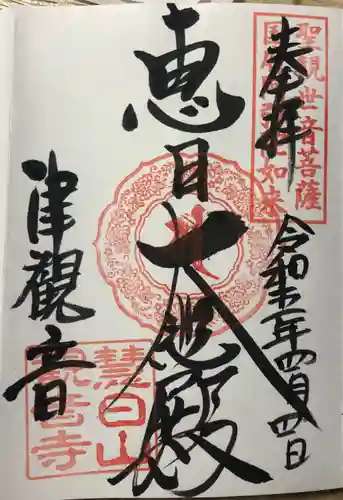 奉拝
聖観世音菩薩
国府阿弥陀如来
恵日大悲殿
令和 年四月四日
津観音
慧日山
観音寺